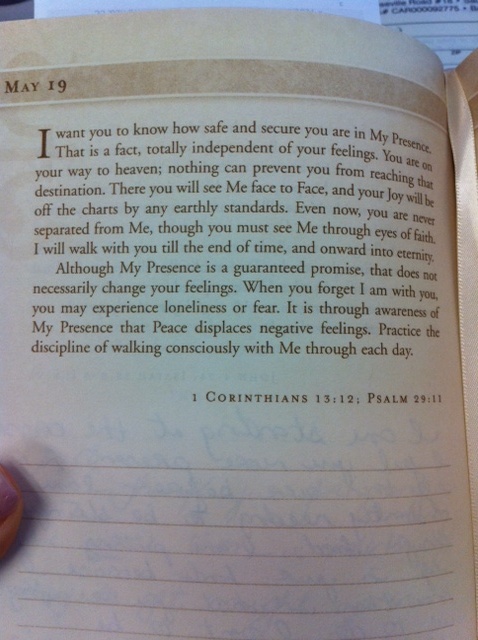 eville Road #18 •
# CAR000092775 •
MAY 19
I want you to know how safe and secure you are in My Presence.
That is a fact, totally independent of your feelings. You are on
your way to heaven; nothing can prevent you from reaching that
destination. There you will see Me face to Face, and your Joy will be
off the charts by any earthly standards. Even now, you are never
separated from Me, though you must see Me through eyes of faith.
I will walk with you till the end of time, and onward into eternity.
Although My Presence is a guaranteed promise, that does not
necessarily change your feelings. When you forget I am with you,
you may experience loneliness or fear. It is through awareness of
My Presence that Peace displaces negative feelings. Practice the
discipline of walking consciously with Me through each day.
1 CORINTHIANS 13:12; PSALM 29:11